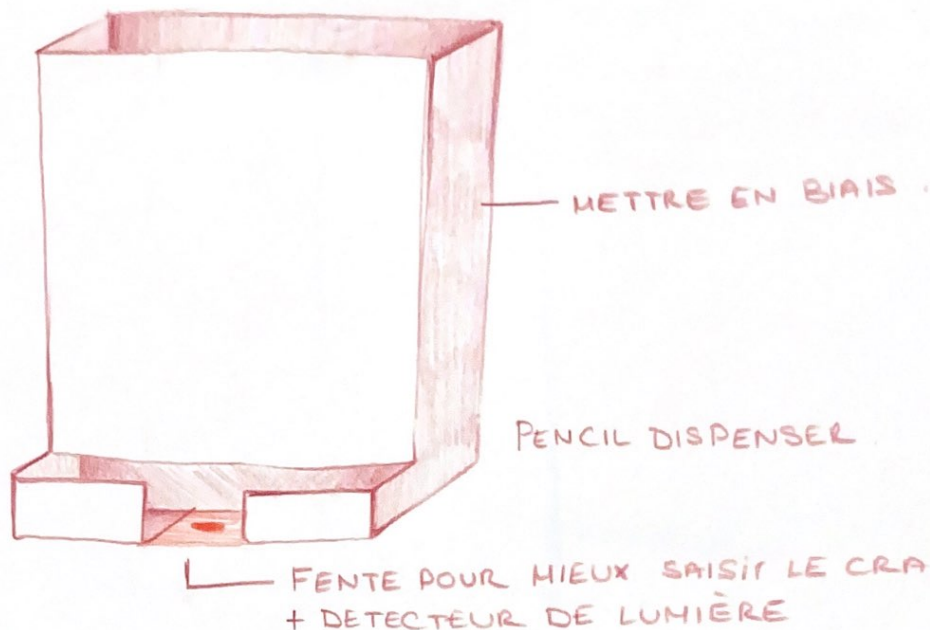 METTRE EN BIAIS.
PENCIL DISPENSER
FENTE POUR MIEUX SAISIr LE CRA
+ DETECTEUR DE LUMIÈRE